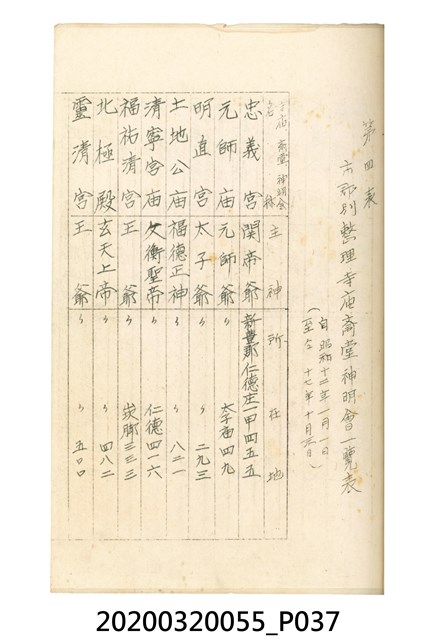 第四表
市郡別整理寺庙斋堂神明會一覽表
(自昭和十二年一月一日
至仝十七年十月末日)
寺庙斋堂神明會名称 主神 所在地
忠義宮 關帝爺 新豊郡仁德庄一甲四五五
元師庙 元師爺 〃 太子庙四九
明直宮 太子爺 〃 〃 二九三
土地公庙 福德正神 〃 〃 八二一
清寧宮庙 文衡聖帝 〃 仁德四一六
福祐清宮 王爺 〃 崁脚三三三
北極殿 玄天上帝 〃 〃 四八二
靈清宮 王爺 〃 〃 五〇〇
20200320055_P037